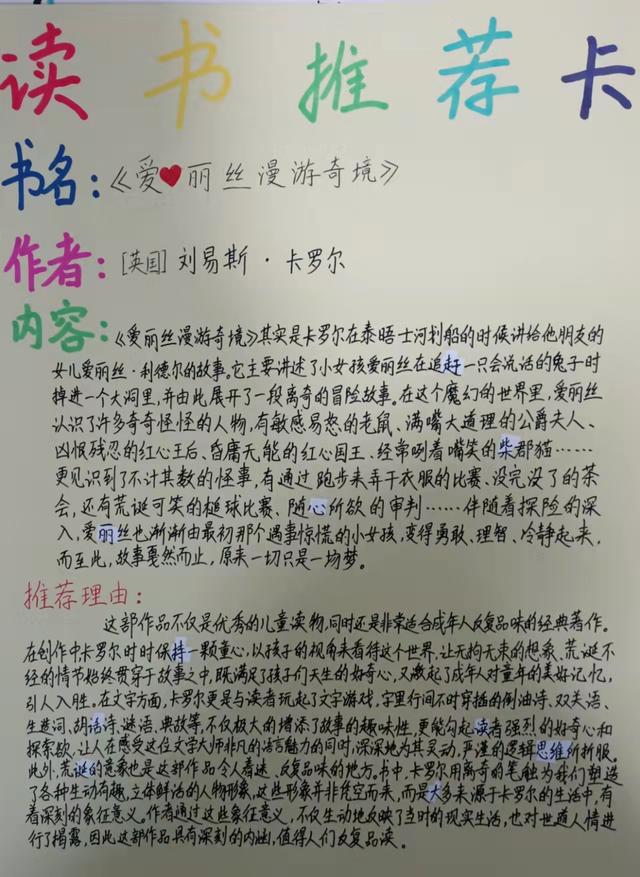 读书推荐卡
书名：《爱丽丝漫游奇境》
作者：[英国]刘易斯·卡罗尔
内容：《爱丽丝漫游奇境》其实是卡罗尔在泰晤士河划船的时候讲给他朋友的
女儿爱丽丝·利德尔的故事。它主要讲述了小女孩爱丽丝在追赶一只会说话的兔子时
掉进一个大洞里，并由此展开了一段离奇的冒险故事。在这个魔幻的世界里，爱丽丝
认识了许多奇奇怪怪的人物，有敏感易怒的老鼠、满嘴大道理的公爵夫人、
凶恨残忍的红心王后、昏庸无能的红心国王、经常咧着嘴笑的柴郡猫……
更见识到了不计其数的怪事，有通过跑步来弄干衣服的比赛、没完没了的茶
会，还有荒诞可笑的槌球比赛、随心所欲的审判……伴随着探险的深
入，爱丽丝也渐渐由最初那个遇事惊慌的小女孩，变得勇敢、理智、冷静起来，
而至此，故事戛然而止，原来一切只是一场梦。
推荐理由：
这部作品不仅是优秀的儿童读物，同时还是非常适合成年人反复品味的经典著作。
在创作中，卡罗尔时时保持一颗童心，以孩子的视角来看待这个世界，让无拘无束的想象、荒诞不
经的情节始终贯穿于故事之中，既满足了孩子们天生的好奇心，又激起了成年人对童年的美好记忆，
引人入胜。在文字方面，卡罗尔更是与读者玩起了文字游戏，字里行间不时穿插的倒油诗、双关语、
生造词、胡话诗、谜语、典故等，不仅极大的增添了故事的趣味性，更能勾起读者强烈的好奇心和
探索欲，让人在感受这位文学大师非凡的语言魅力的同时，深深地为其灵动，严谨的逻辑思维所折服。
此外，荒诞的意象也是这部作品令人着迷、反复品味的地方。书中，卡罗尔用离奇的笔触为我们塑造
了各种生动有趣，立体鲜活的人物形象，这些形象并非凭空而来，而是大多来源于卡罗尔的生活中，有
着深刻的象征意义。作者通过这些象征意义，不仅生动地反映了当时的现实生活，也对世道人情进
行了揭露，因此这部作品具有深刻的内涵，值得人们反复品读。